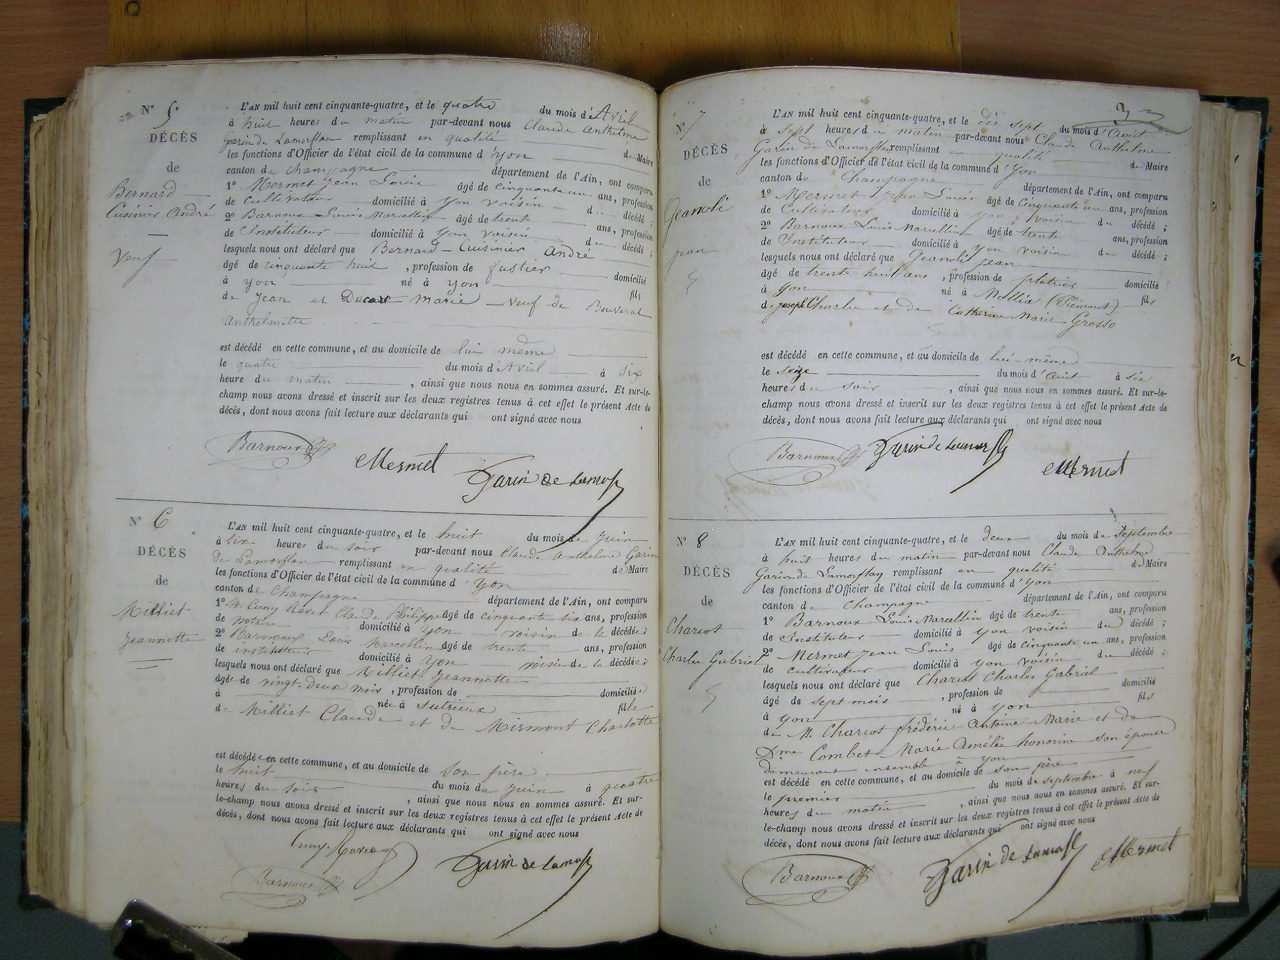 N° 5
DÉCÈS
de
Bernard
Cusinier André
Veuf
L'AN mil huit cent cinquante-quatre, et le quatre du mois d'Avril
à huit heures du matin par-devant nous Claude Anthelme
Garin de Lamorflan remplissant en qualité de Maire
les fonctions d'Officier de l'état civil de la commune d'yon
canton de champagne département de l'Ain, ont comparu
1° Mermet Jean Louis âgé de cinquante un ans, profession
de cultivateur domicilié à yon voisin du décédé ;
2° Barnoux Louis Marcellin âgé de trente ans, profession
de Instituteur domicilié à yon voisin du décédé ;
lesquels nous ont déclaré que Bernard-Cuisinier André
âgé de cinquante huit , profession de fustier domicilié
à yon né à yon fils
de Jean et Marie veuf de Bouverat
Anthelmette
est décédé en cette commune, et au domicile de lui même
le quatre du mois d'Avril à six
heure du matin , ainsi que nous nous en sommes assuré. Et sur-le-
champ nous avons dressé et inscrit sur les deux registres tenus à cet effet le présent Acte de
décès, dont nous avons fait lecture aux déclarants qui ont signé avec nous
Barnoux
Mermet
Garin de Lamorf
N° 6
DÉCÈS
de
Milliet
Jeannette
L'AN mil huit cent cinquante-quatre, et le huit du mois de juin
à six heures du soir par-devant nous Claude Anthelme Garin
De Lamorflan remplissant en qualité de Maire
les fonctions d'Officier de l'état civil de la commune d'yon
canton de Champagne département de l'Ain, ont comparu
1° M. Cuny Claude Philippe âgé de cinquante six ans, profession
de notaire domicilié à yon voisin de la décédée
2° Barnoux Louis Marcellin âgé de trente ans, profession
de instituteur domicilié à yon voisin de la décédée
lesquels nous ont déclaré que Milliet Jeannette
âgée de vingt-deux mois , profession de domiciliée
à née à Sutrieux fille
de Milliet Claude et de Mermont Charlotte
est décédée en cette commune, et au domicile de son père
le huit du mois de juin à quatre
heures du soir , ainsi que nous nous en sommes assuré. Et sur-
le-champ nous avons dressé et inscrit sur les deux registres tenus à cet effet le présent Acte de
décès, dont nous avons fait lecture aux déclarants qui ont signé avec nous
Cuny
Barnoux
Garin de Lamorf
N° 7
DÉCÈS
de
Jean
L'AN mil huit cent cinquante-quatre, et le dix sept du mois d'Août
à sept heures du matin par-devant nous Claude Anthelme
Garin de Lamorflan remplissant qualité de Maire
les fonctions d'Officier de l'état civil de la commune d'yon
canton de Champagne département de l'Ain, ont comparu
1° Mermet Jean Louis âgé de cinquante un ans, profession
de Cultivateur domicilié à yon voisin du décédé ;
2° Barnoux Louis Marcellin âgé de trente ans, profession
de Instituteur domicilié à yon voisin du décédé ;
lesquels nous ont déclaré que Jean
âgé de trente huit ans , profession de platrier domicilié
à yon né à Mollia (Piémont) fils
de joseph Charles et de Catherine Marie Grosso
est décédé en cette commune, et au domicile de lui-même
le seize du mois d'août à six
heures du soir , ainsi que nous nous en sommes assuré. Et sur-le-
champ nous avons dressé et inscrit sur les deux registres tenus à cet effet le présent Acte de
décès, dont nous avons fait lecture aux déclarants qui ont signé avec nous
Barnoux
Garin de Lamorf
Mermet
N° 8
DÉCÈS
de
Charcot
Charles Gabriel
L'AN mil huit cent cinquante-quatre, et le deux du mois de Septembre
à huit heures du matin par-devant nous Claude Anthelme
Garin de Lamorflan remplissant en qualité de Maire
les fonctions d'Officier de l'état civil de la commune d'yon
canton de Champagne département de l'Ain, ont comparu
1° Barnoux Louis Marcellin âgé de trente ans, profession
de Instituteur domicilié à yon voisin du décédé ;
2° Mermet Jean Louis âgé de cinquante un ans, profession
de cultivateur domicilié à yon voisin du décédé ;
lesquels nous ont déclaré que Charcot Charles Gabriel
âgé de sept mois , profession de domicilié
à yon né à yon fils
de M. Charcot frédéric Antoine Marie et de
Dme Combet Marie Amélie honorine son épouse
demeurant ensemble à yon
est décédé en cette commune, et au domicile de son père
le premier du mois de septembre à neuf
heures du matin , ainsi que nous nous en sommes assuré. Et sur-
le-champ nous avons dressé et inscrit sur les deux registres tenus à cet effet le présent Acte de
décès, dont nous avons fait lecture aux déclarants qui ont signé avec nous
Barnoux
Garin de Lamorf
Mermet